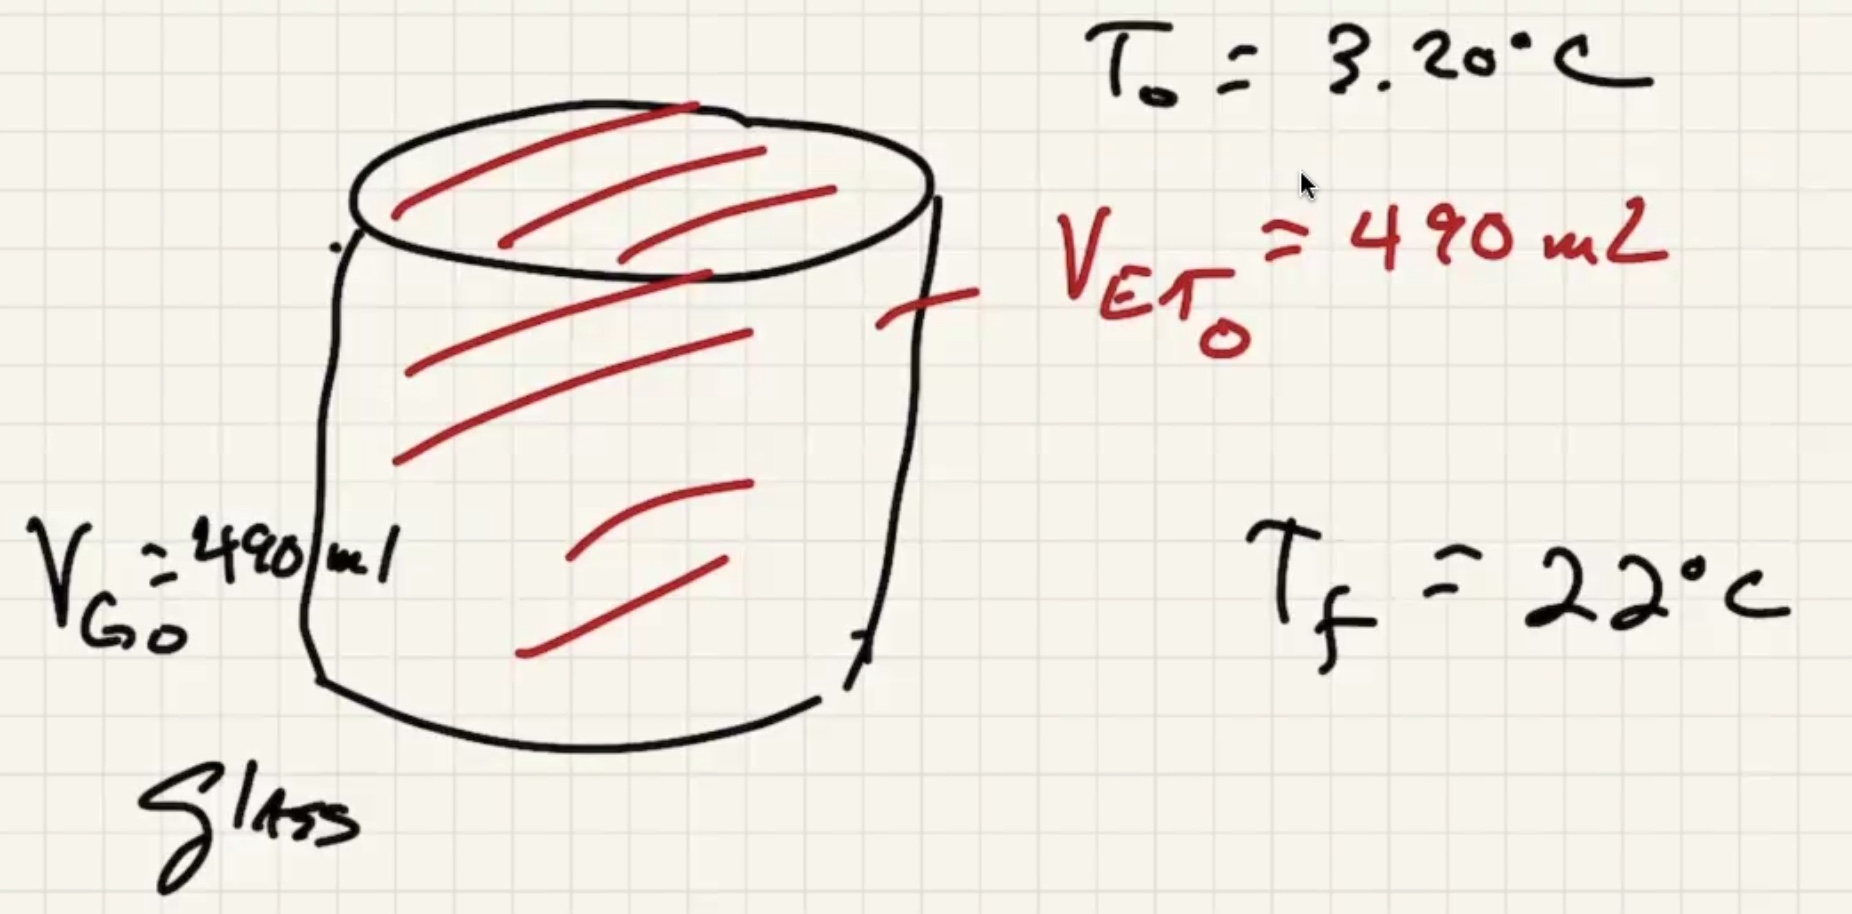 T₀ = 3.20°C
V_ET₀ = 490 mL
V_G₀ = 490 ml
T_f = 22°C
glass